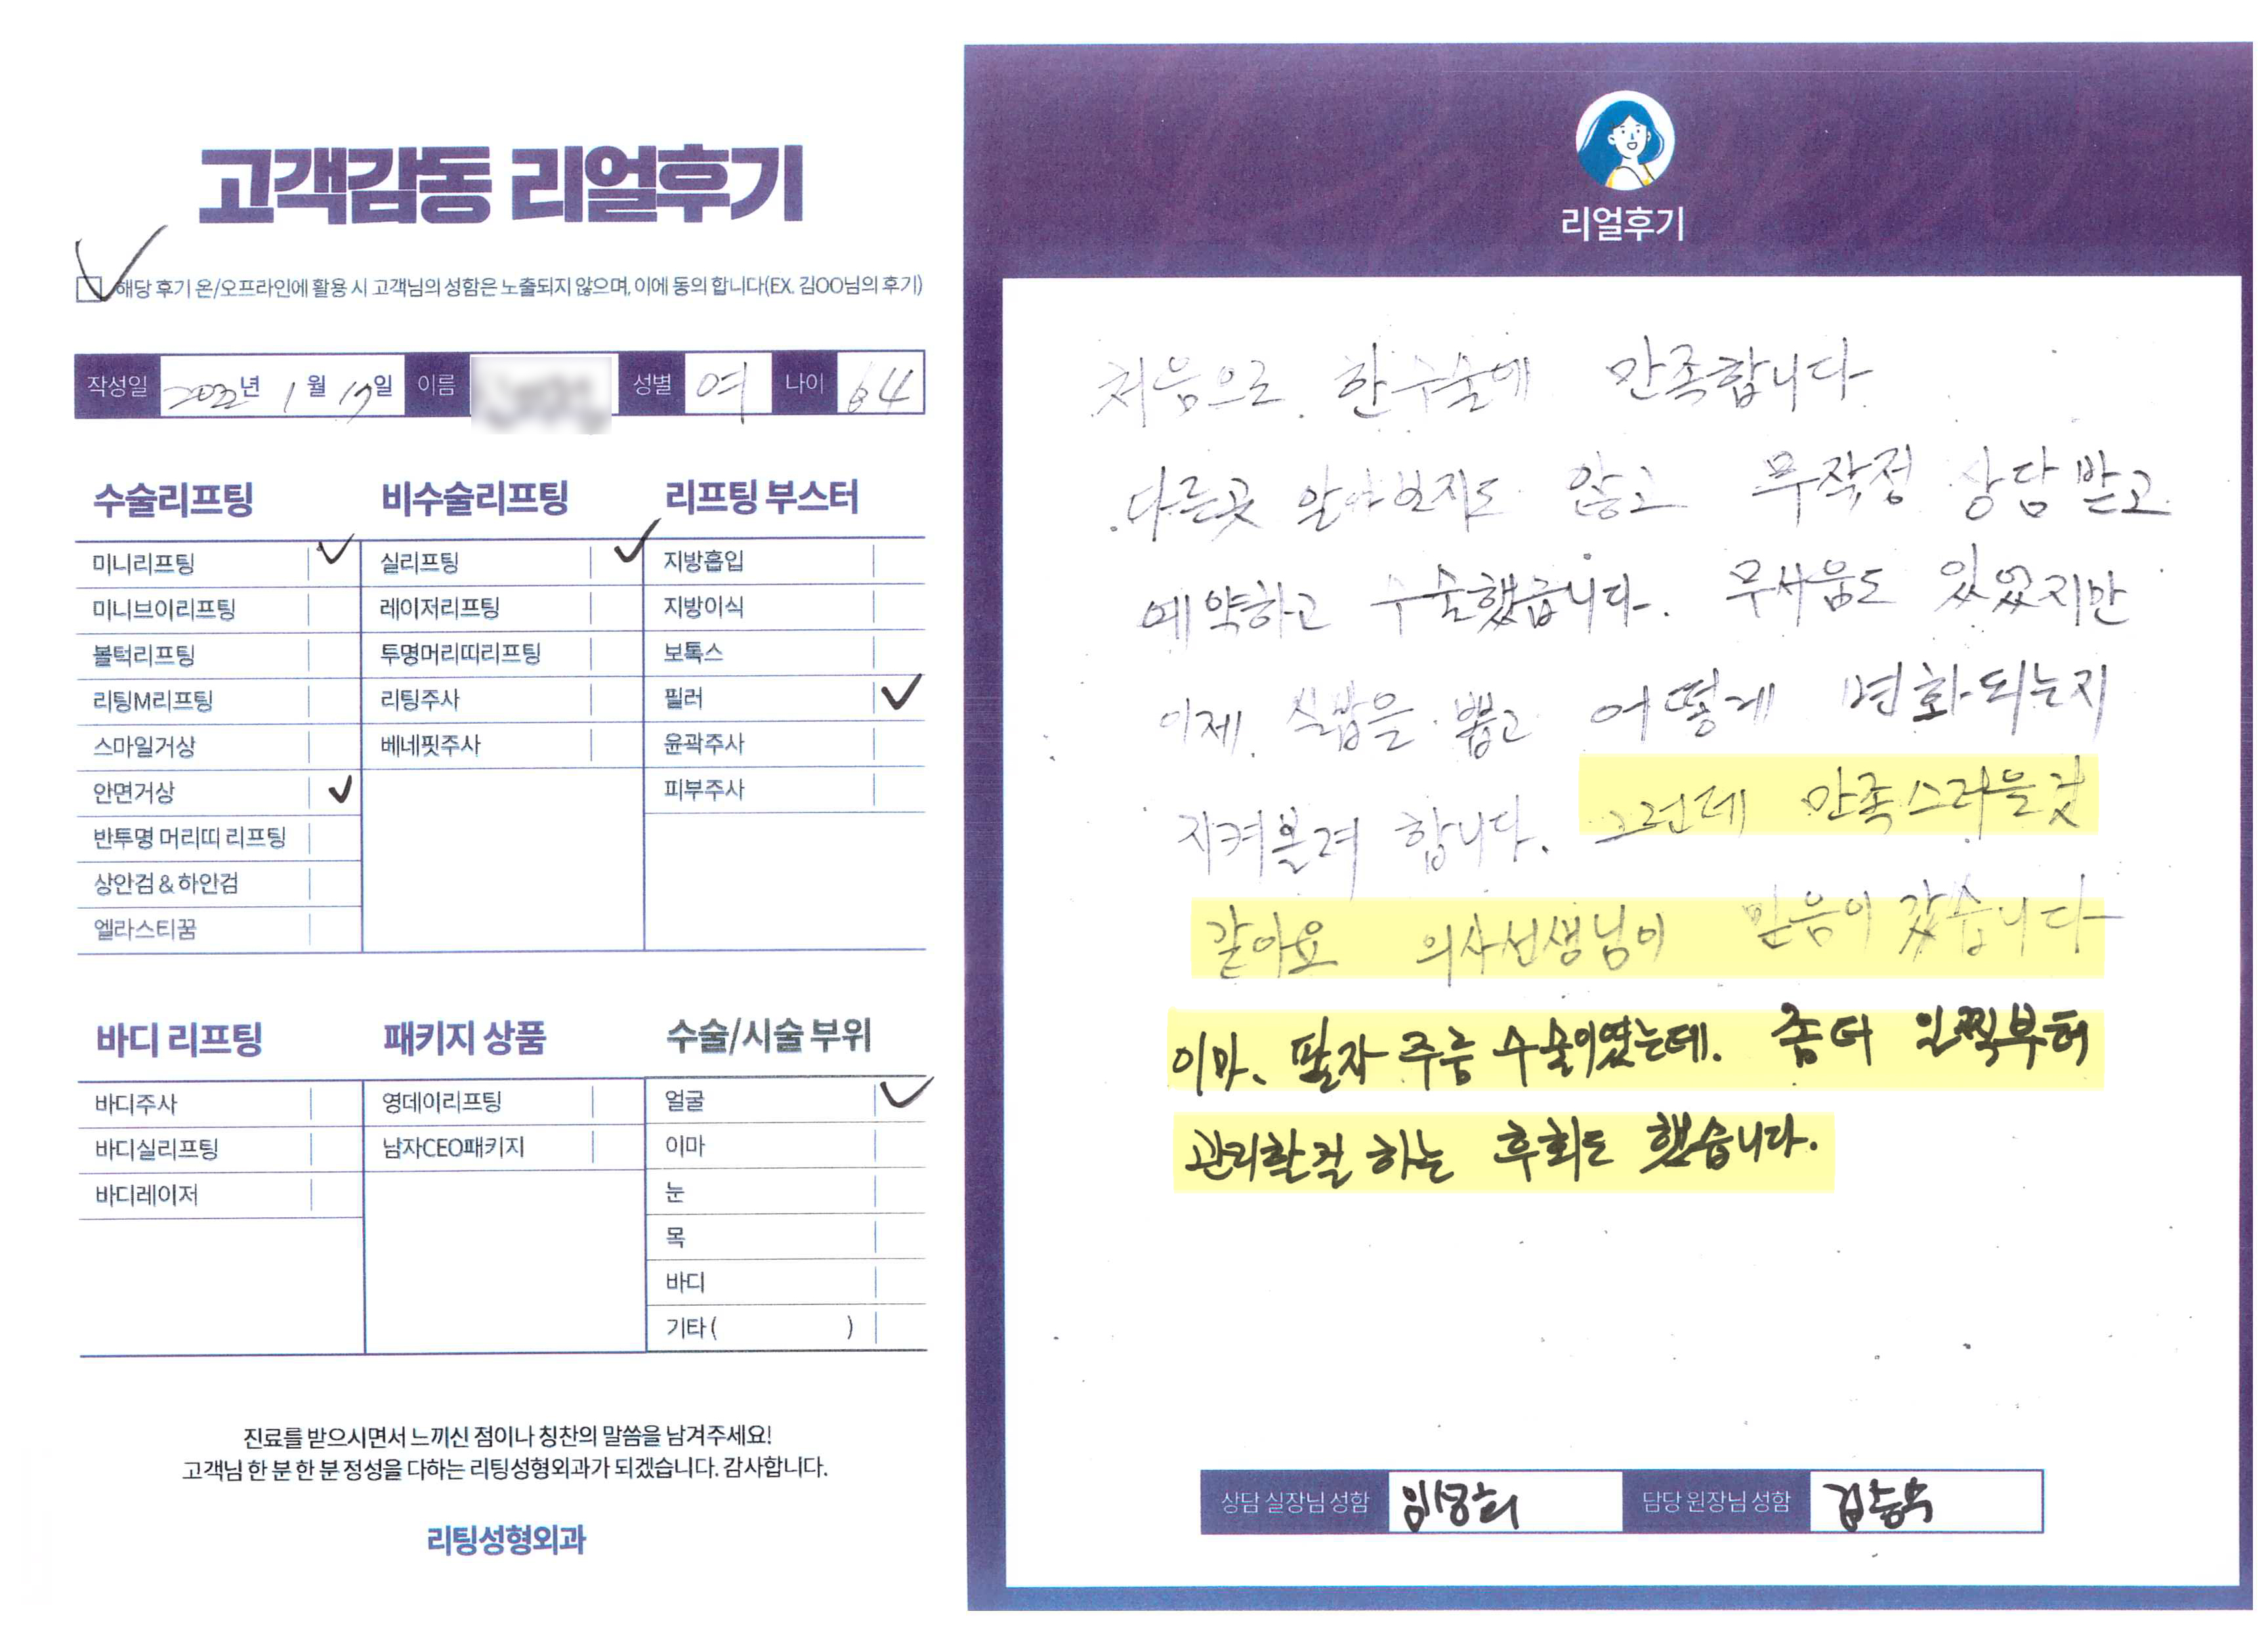 고객감동 리얼후기
해당 후기 온/오프라인에 활용 시 고객님의 성함은 노출되지 않으며, 이에 동의 합니다(EX. 김OO님의 후기)
작성일 2022년 1월 17일 이름 성별 여 나이 64
수술리프팅
미니리프팅
미니브이리프팅
볼턱리프팅
리팅M리프팅
스마일거상
안면거상
반투명 머리띠 리프팅
상안검 & 하안검
엘라스티꿈
비수술리프팅
실리프팅
레이저리프팅
투명머리띠리프팅
리팅주사
베네핏주사
리프팅 부스터
지방흡입
지방이식
보톡스
필러
윤곽주사
피부주사
바디 리프팅
바디주사
바디실리프팅
바디레이저
패키지 상품
영데이리프팅
남자CEO패키지
수술/시술 부위
얼굴
이마
눈
목
바디
기타 ( )
진료를 받으시면서 느끼신 점이나 칭찬의 말씀을 남겨주세요!
고객님 한 분 한 분 정성을 다하는 리팅성형외과가 되겠습니다. 감사합니다.
리팅성형외과
리얼후기
처음으로 한수술에 만족합니다
다른곳 알아보지도 않고 무작정 상담받고
예약하고 수술했습니다. 무서움도 있었지만
이제 실밥을 뽑고 어떻게 변화되는지
지켜볼려 합니다. 그런데 만족스러울것
같아요 의사선생님이 믿음이 갔습니다
이마, 팔자 주름 수술이였는데. 좀더 일찍부터
관리할걸 하는 후회도 했습니다.
상담 실장님 성함 담당 원장님 성함